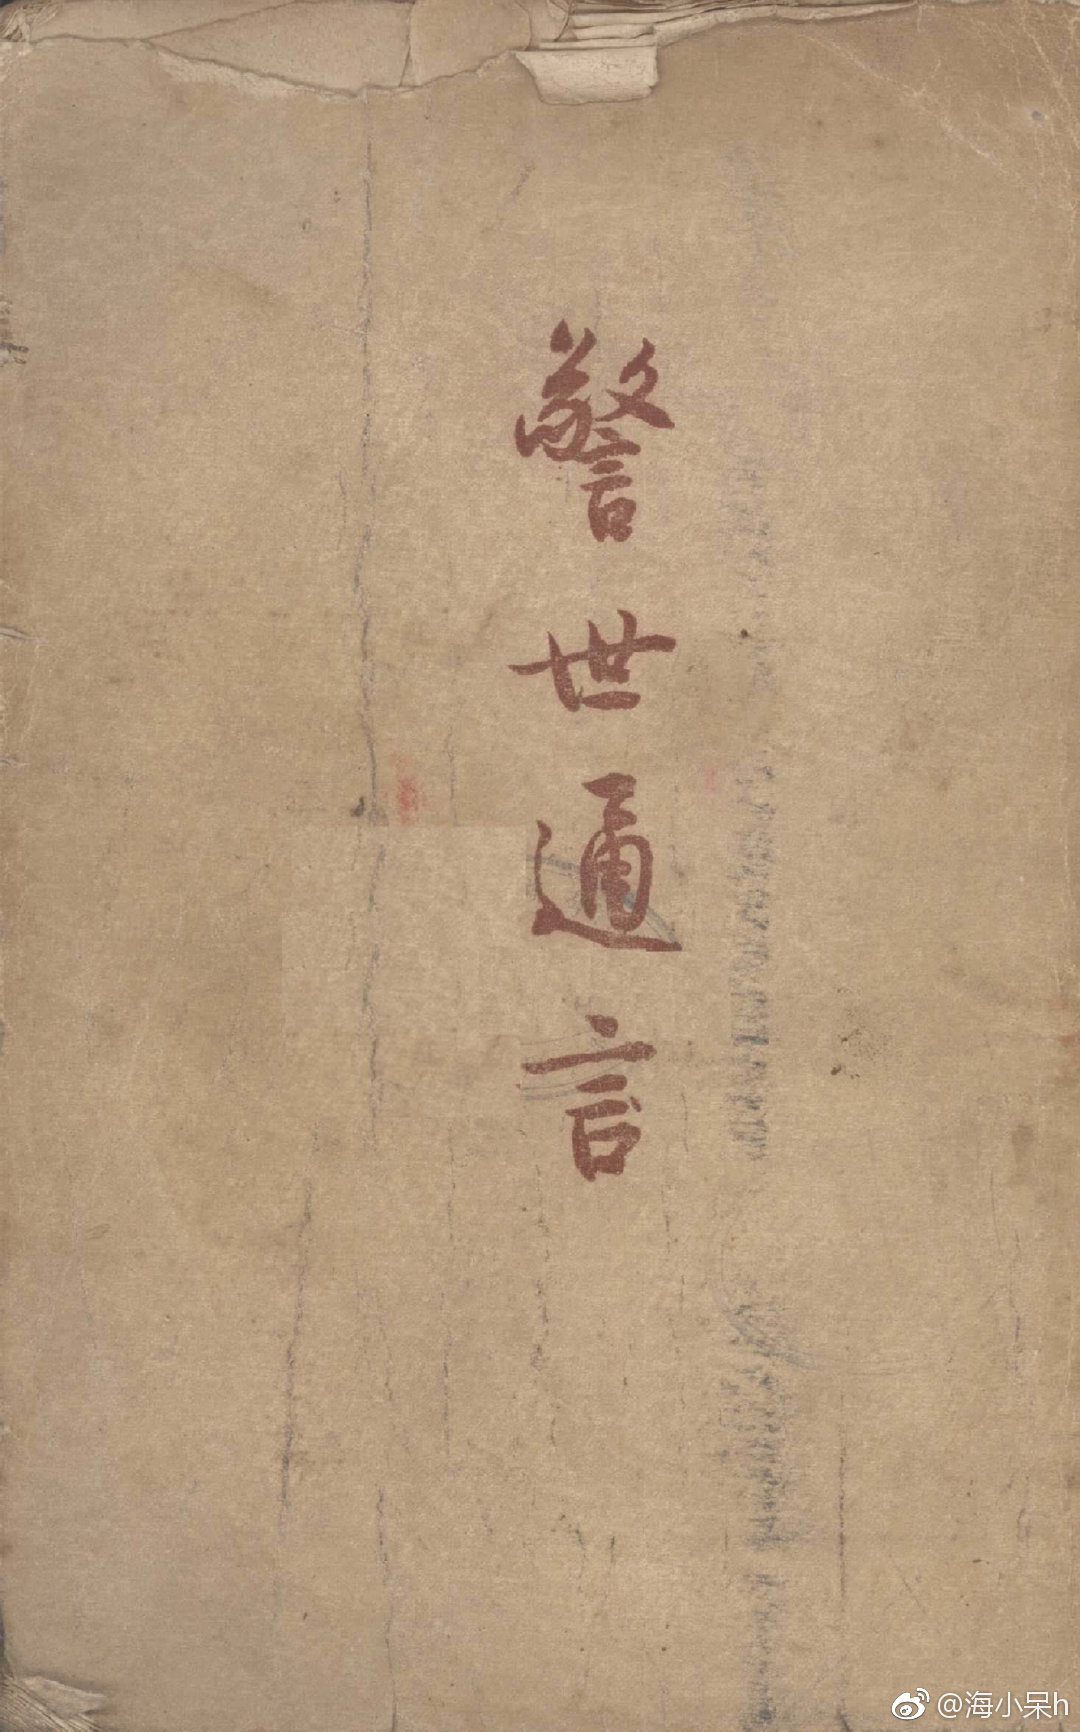 警世通言
@海小呆h